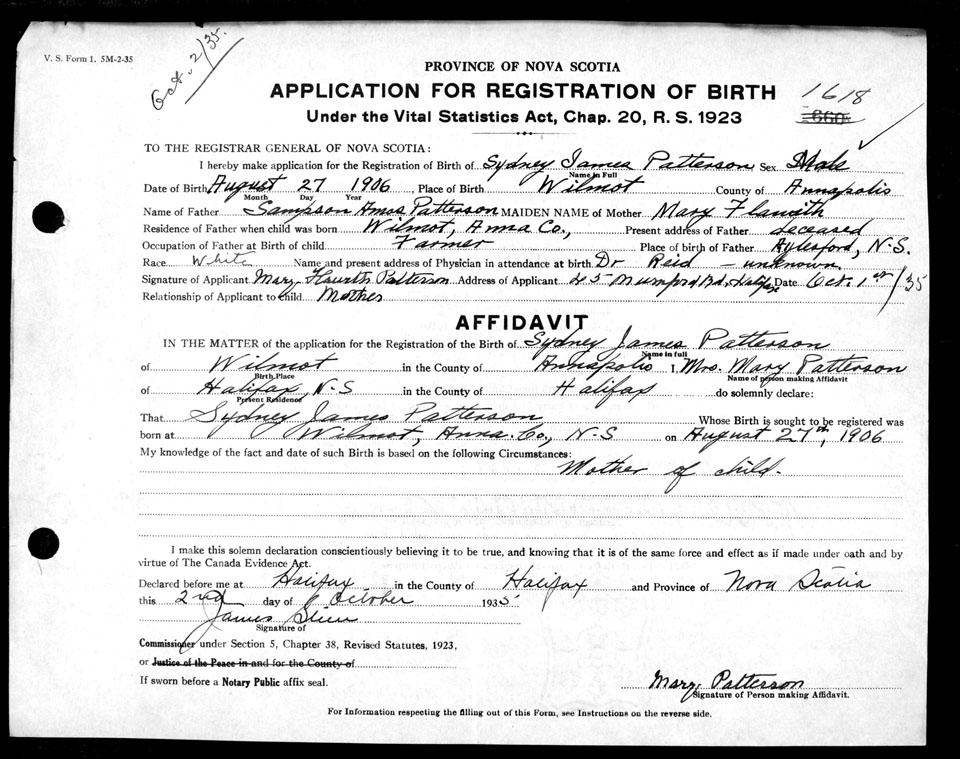 V. S. Form 1. 5M-2-35
Oct. 2/35.
PROVINCE OF NOVA SCOTIA
APPLICATION FOR REGISTRATION OF BIRTH
1618
660
Under the Vital Statistics Act, Chap. 20, R. S. 1923
TO THE REGISTRAR GENERAL OF NOVA SCOTIA:
I hereby make application for the Registration of Birth of Sydney James Patterson Sex Male
Name in Full
Date of Birth August 27 1906, Place of Birth Wilmot County of Annapolis
Month Day Year
Name of Father Sampson Amos Patterson MAIDEN NAME of Mother Mary
Residence of Father when child was born Wilmot, Anna Co., Present address of Father deceased
Occupation of Father at Birth of child Farmer Place of birth of Father Aylesford, N.S.
Race White Name and present address of Physician in attendance at birth Dr Reid – unknown.
Signature of Applicant Mary Patterson Address of Applicant 25 Mumford Rd, Halifax Date Oct. 1st/35
Relationship of Applicant to child Mother
AFFIDAVIT
IN THE MATTER of the application for the Registration of the Birth of Sydney James Patterson
Name in full
of Wilmot in the County of Annapolis I, Mrs. Mary Patterson
Birth Place Name of person making Affidavit
of Halifax, N.S in the County of Halifax do solemnly declare:
Present Residence
That Sydney James Patterson Whose Birth is sought to be registered was
born at Wilmot, Anna. Co., N-S on August 27th, 1906
My knowledge of the fact and date of such Birth is based on the following Circumstances:
Mother of child.
I make this solemn declaration conscientiously believing it to be true, and knowing that it is of the same force and effect as if made under oath and by
virtue of The Canada Evidence Act.
Declared before me at Halifax in the County of Halifax and Province of Nova Scotia
this 2nd day of October 1935
James
Signature of
Commissioner under Section 5, Chapter 38, Revised Statutes, 1923,
or Justice of the Peace in and for the County of
If sworn before a Notary Public affix seal.
Mary Patterson
Signature of Person making Affidavit.
For Information respecting the filling out of this Form, see Instructions on the reverse side.